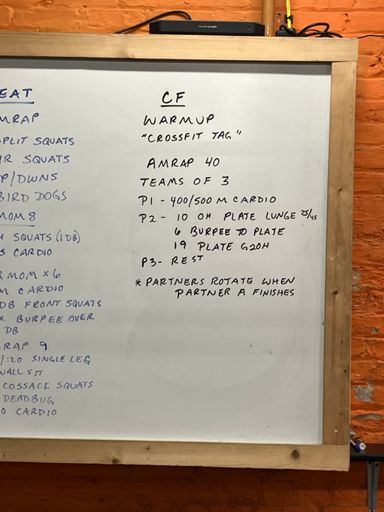 EAT
MRAP
SPLIT SQUATS
SQUATS
P/DWNS
BIRD DOGS
MOM 8
SQUATS (1 DB)
CARDIO
MOM x 6
M CARDIO
DB FRONT SQUATS
BURPEE OVER
DB
RAP 9
:20 SINGLE LEG
WALL SIT
COSSACK SQUATS
DEADBUG
CARDIO
CF
WARMUP
"CROSSFIT TAG"
AMRAP 40
TEAMS OF 3
P1 - 400/500 M CARDIO
P2 - 10 OH PLATE LUNGE 25/45
6 BURPEE TO PLATE
19 PLATE G2OH
P3 - REST
* PARTNERS ROTATE WHEN
PARTNER A FINISHES